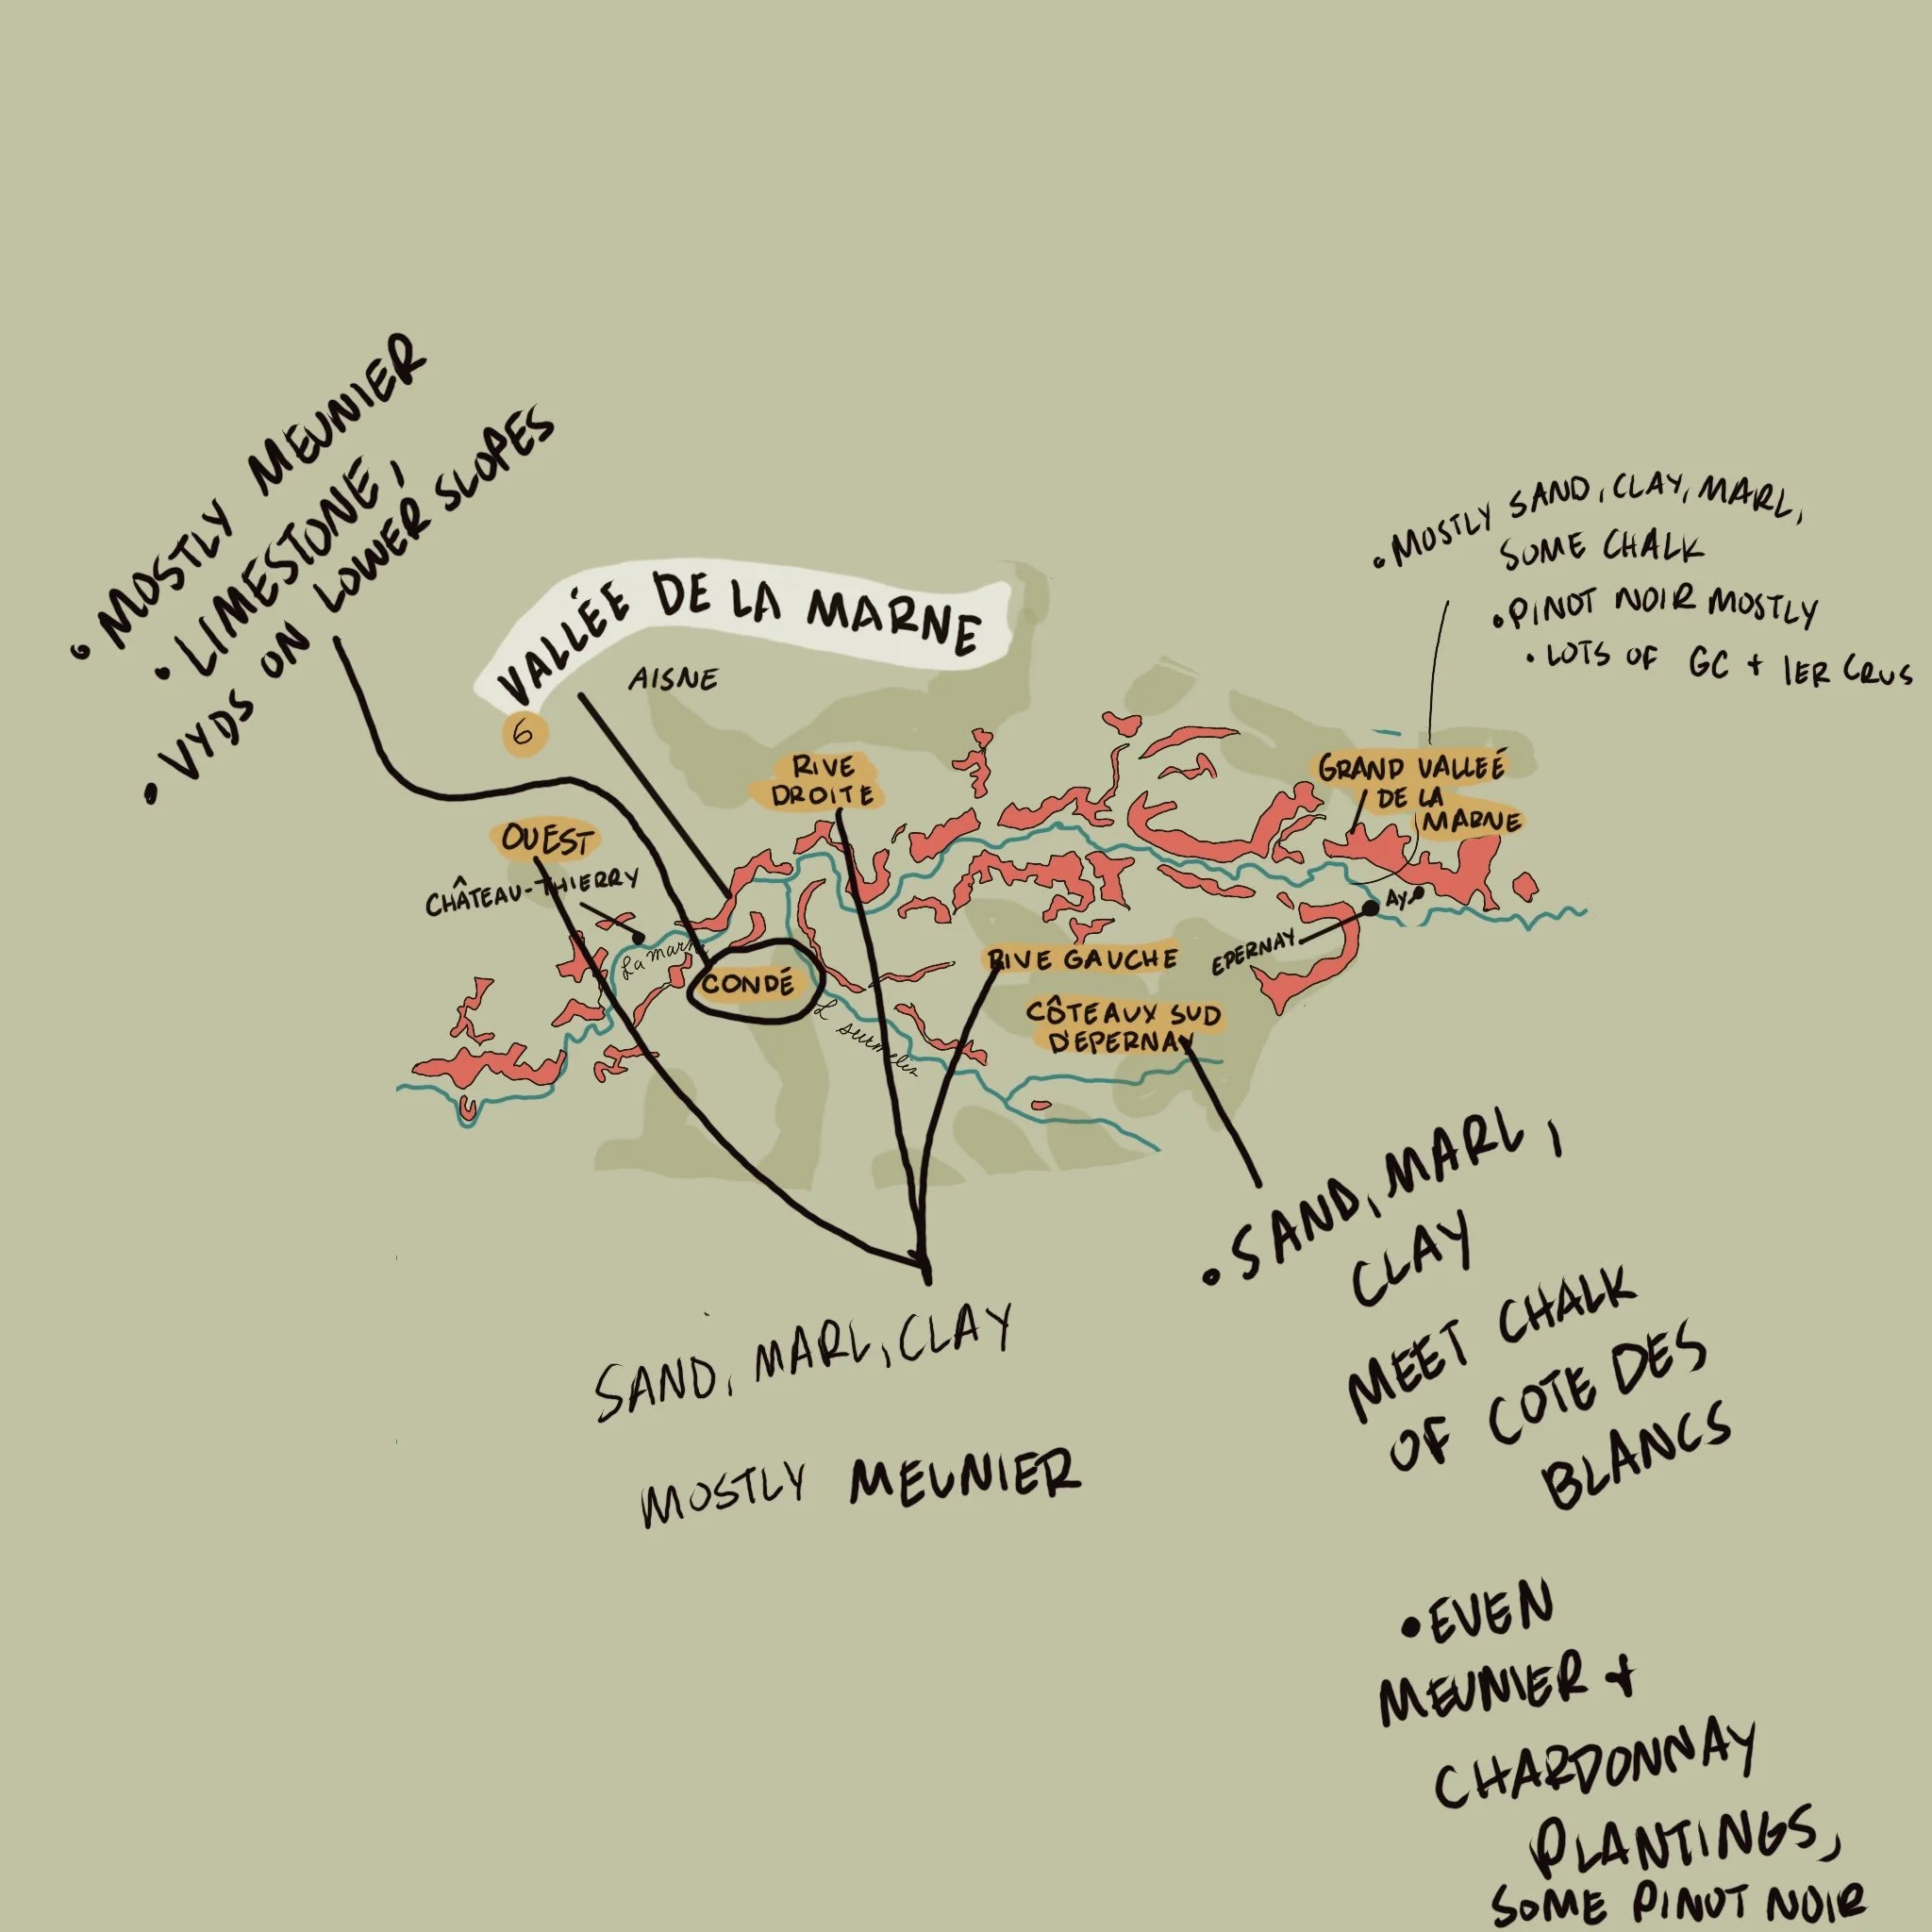 • MOSTLY MEUNIER
• LIMESTONE,
• VYDS ON LOWER SLOPES
VALLÉE DE LA MARNE
6
AISNE
• MOSTLY SAND, CLAY, MARL,
SOME CHALK
• PINOT NOIR MOSTLY
• LOTS OF GC + 1ER CRUS
RIVE
DROITE
GRAND VALLEÉ
DE LA
MARNE
OUEST
CHÂTEAU-THIERRY
AY
EPERNAY
La marne
CONDÉ
RIVE GAUCHE
CÔTEAUX SUD
D'EPERNAY
L surmelin
SAND, MARL, CLAY
MOSTLY MEUNIER
• SAND, MARL,
CLAY
MEET CHALK
OF COTE DES
BLANCS
• EVEN
MEUNIER +
CHARDONNAY
PLANTINGS,
SOME PINOT NOIR